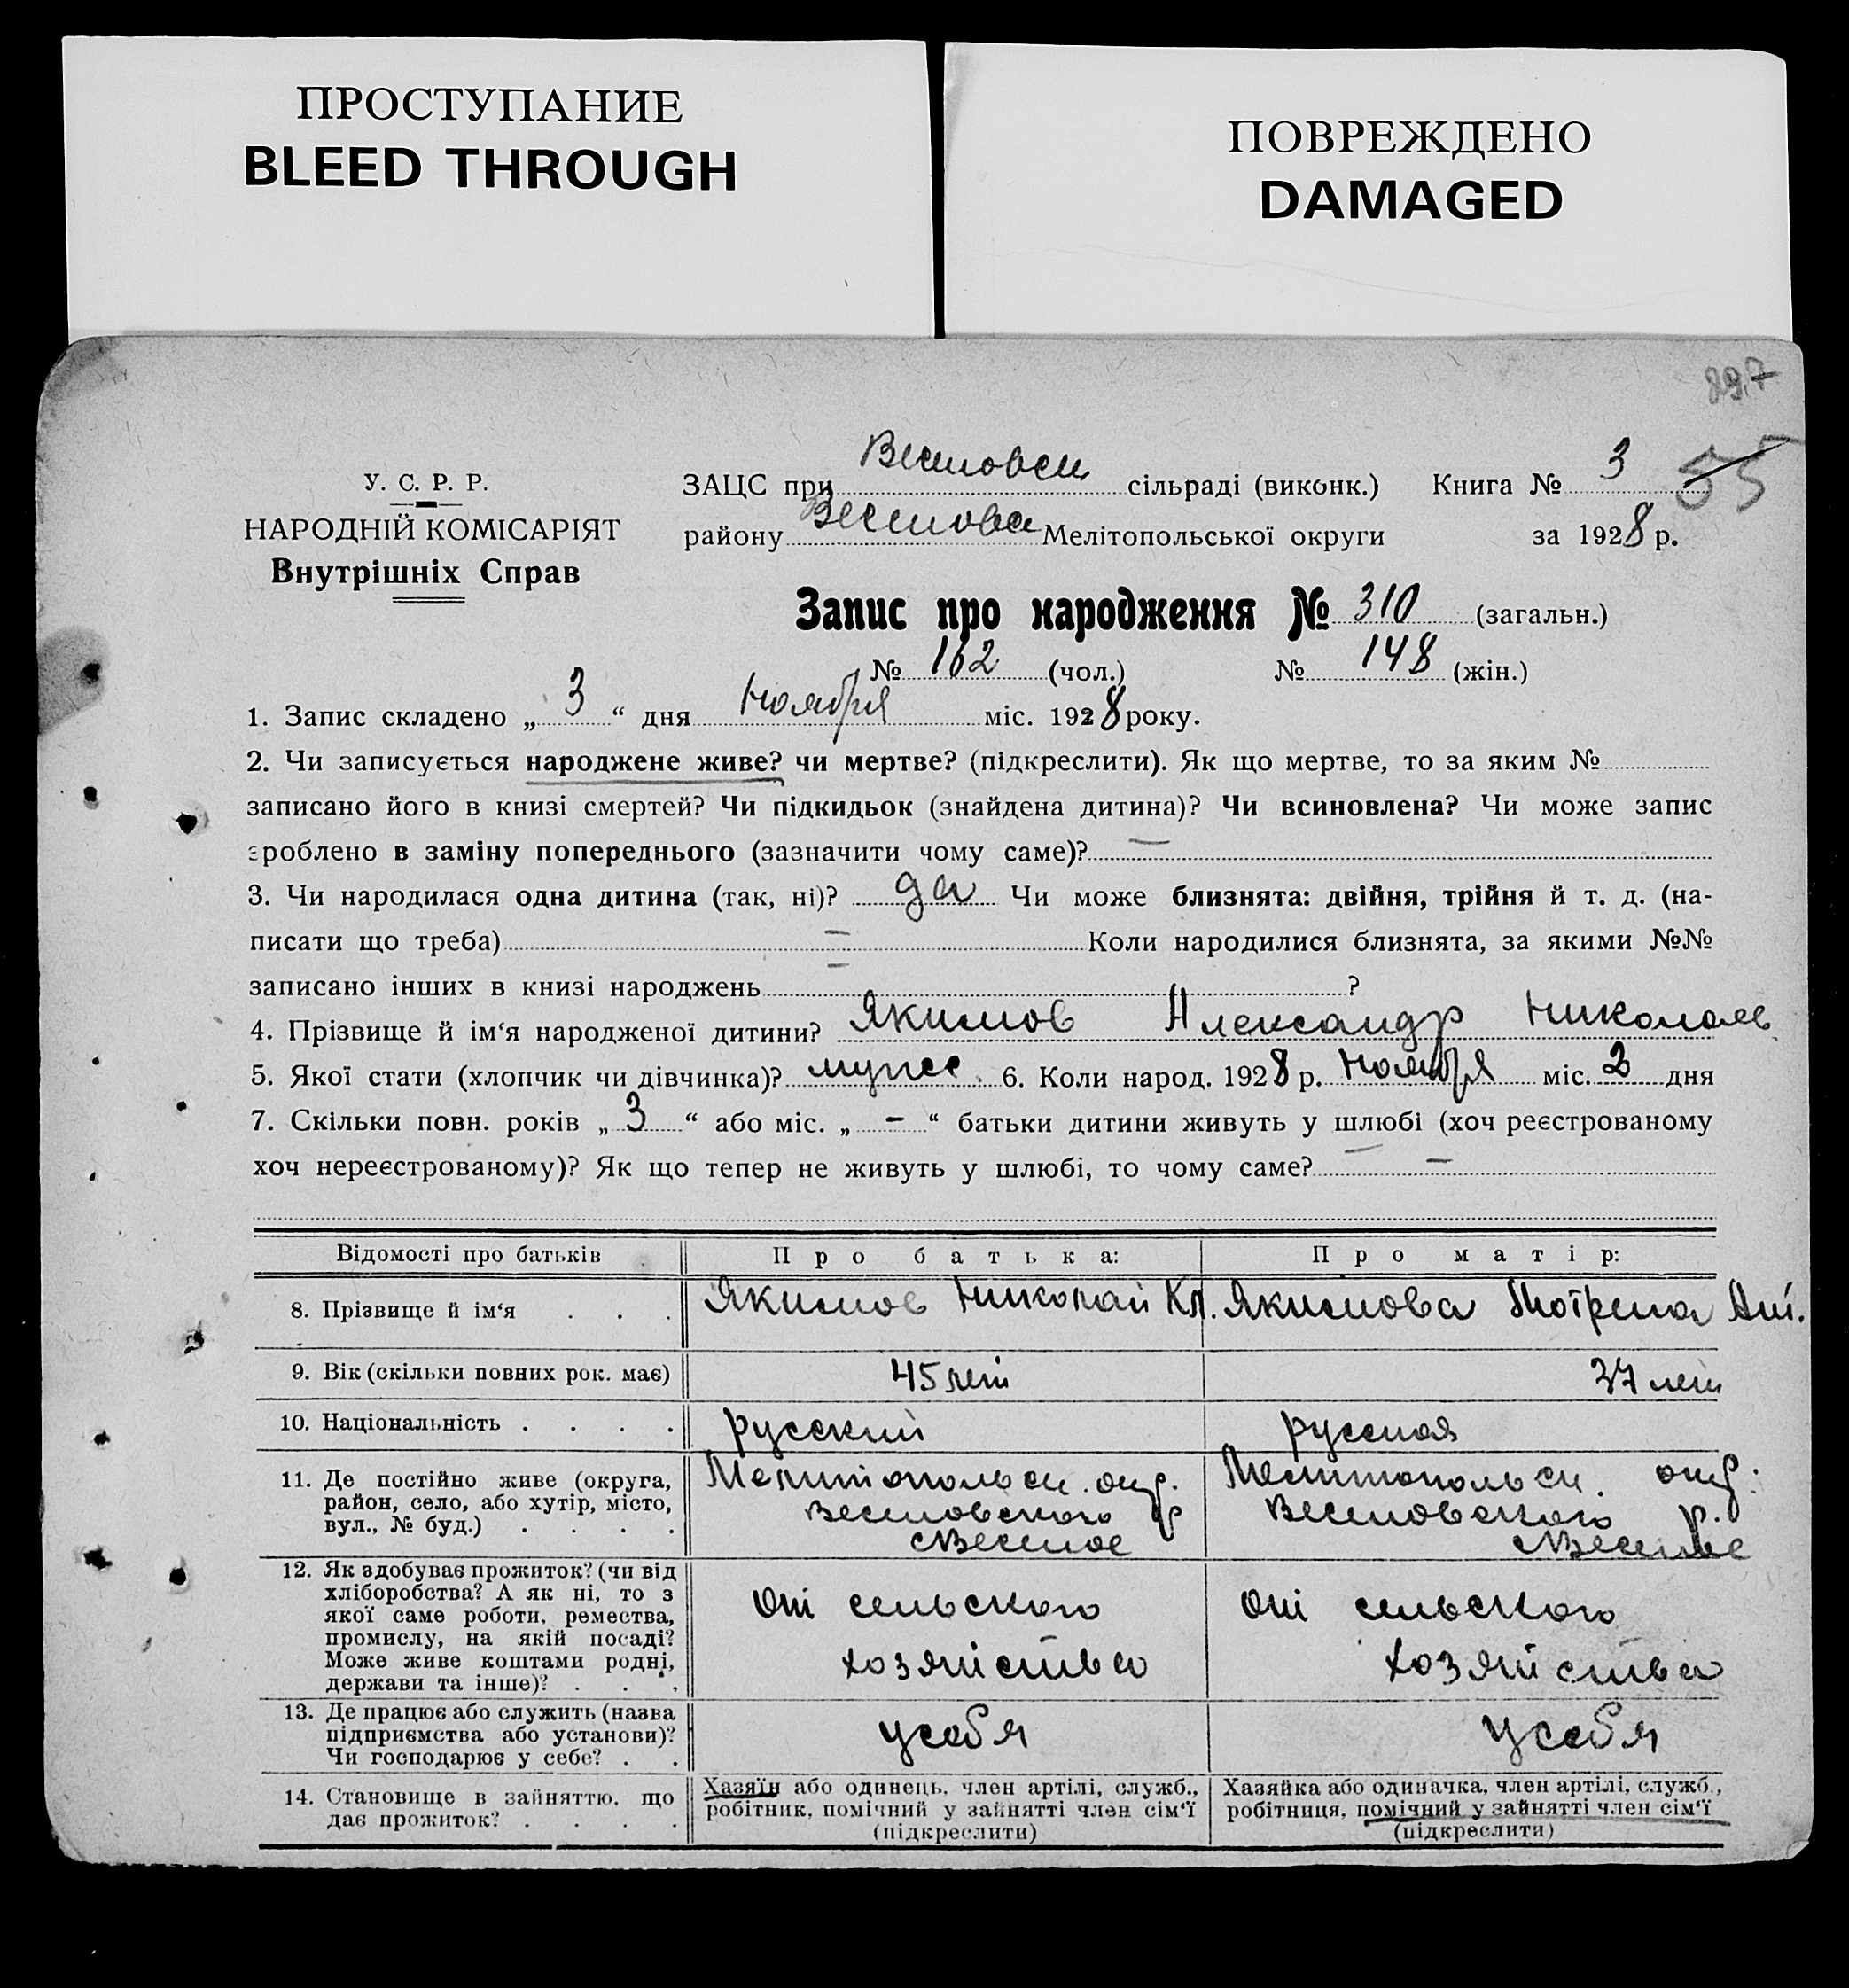 ПРОСТУПАНИЕ
BLEED THROUGH
ПОВРЕЖДЕНО
DAMAGED
У. С. Р. Р.
НАРОДНІЙ КОМІСАРІЯТ
Внутрішніх Справ
ЗАЦС при Веселовск сільраді (виконк.) Книга № 3 55
району Веселовск Мелітопольської округи за 1928 р.
Запис про народження № 310 (загальн.)
№ 162 (чол.) № 148 (жін.)
1. Запис складено „ 3 “ дня Ноября міс. 1928 року.
2. Чи записується народжене живе? чи мертве? (підкреслити). Як що мертве, то за яким №
записано його в книзі смертей? Чи підкидьок (знайдена дитина)? Чи всиновлена? Чи може запис
зроблено в заміну попереднього (зазначити чому саме)? —
3. Чи народилася одна дитина (так, ні)? да Чи може близнята: двійня, трійня й т. д. (на-
писати що треба) — Коли народилися близнята, за якими №№
записано інших в книзі народжень — ?
4. Прізвище й ім‘я народженої дитини? Якимов Александр Николаев
5. Якої стати (хлопчик чи дівчинка)? мужск. 6. Коли народ. 1928 р. Ноября міс. 2 дня
7. Скільки повн. років „ 3 “ або міс. „ - “ батьки дитини живуть у шлюбі (хоч реєстрованому
хоч нереєстрованому)? Як що тепер не живуть у шлюбі, то чому саме? —
Відомості про батьків Про батька: Про матір:
8. Прізвище й ім‘я . . . Якимов Николай Кл. Якимова Мотрена Ант.
9. Вік (скільки повних рок. має) 45 лет 37 лет
10. Національність . . . . русский русская
11. Де постійно живе (округа,
район, село, або хутір, місто,
вул., № буд.) . . . .
Мелитопольск. окр.
Веселовского р
с Веселое
Мелитопольск. окр.
Веселовского р.
с Веселое
12. Як здобуває прожиток? (чи від
хліборобства? А як ні, то з
якої саме роботи, ремества,
промислу, на якій посаді?
Може живе коштами родні,
держави та інше)? . . .
От сельского
хозяйства
От сельского
хозяйства
13. Де працює або служить (назва
підприємства або установи)?
Чи господарює у себе? . .
у себя
у себя
14. Становище в зайняттю, що
дає прожиток? . . . .
Хазяїн або одинець, член артілі, служб.,
робітник, помічний у зайнятті член сім‘ї
(підкреслити)
Хазяйка або одиначка, член артілі, служб.,
робітниця, помічний у зайнятті член сім‘ї
(підкреслити)